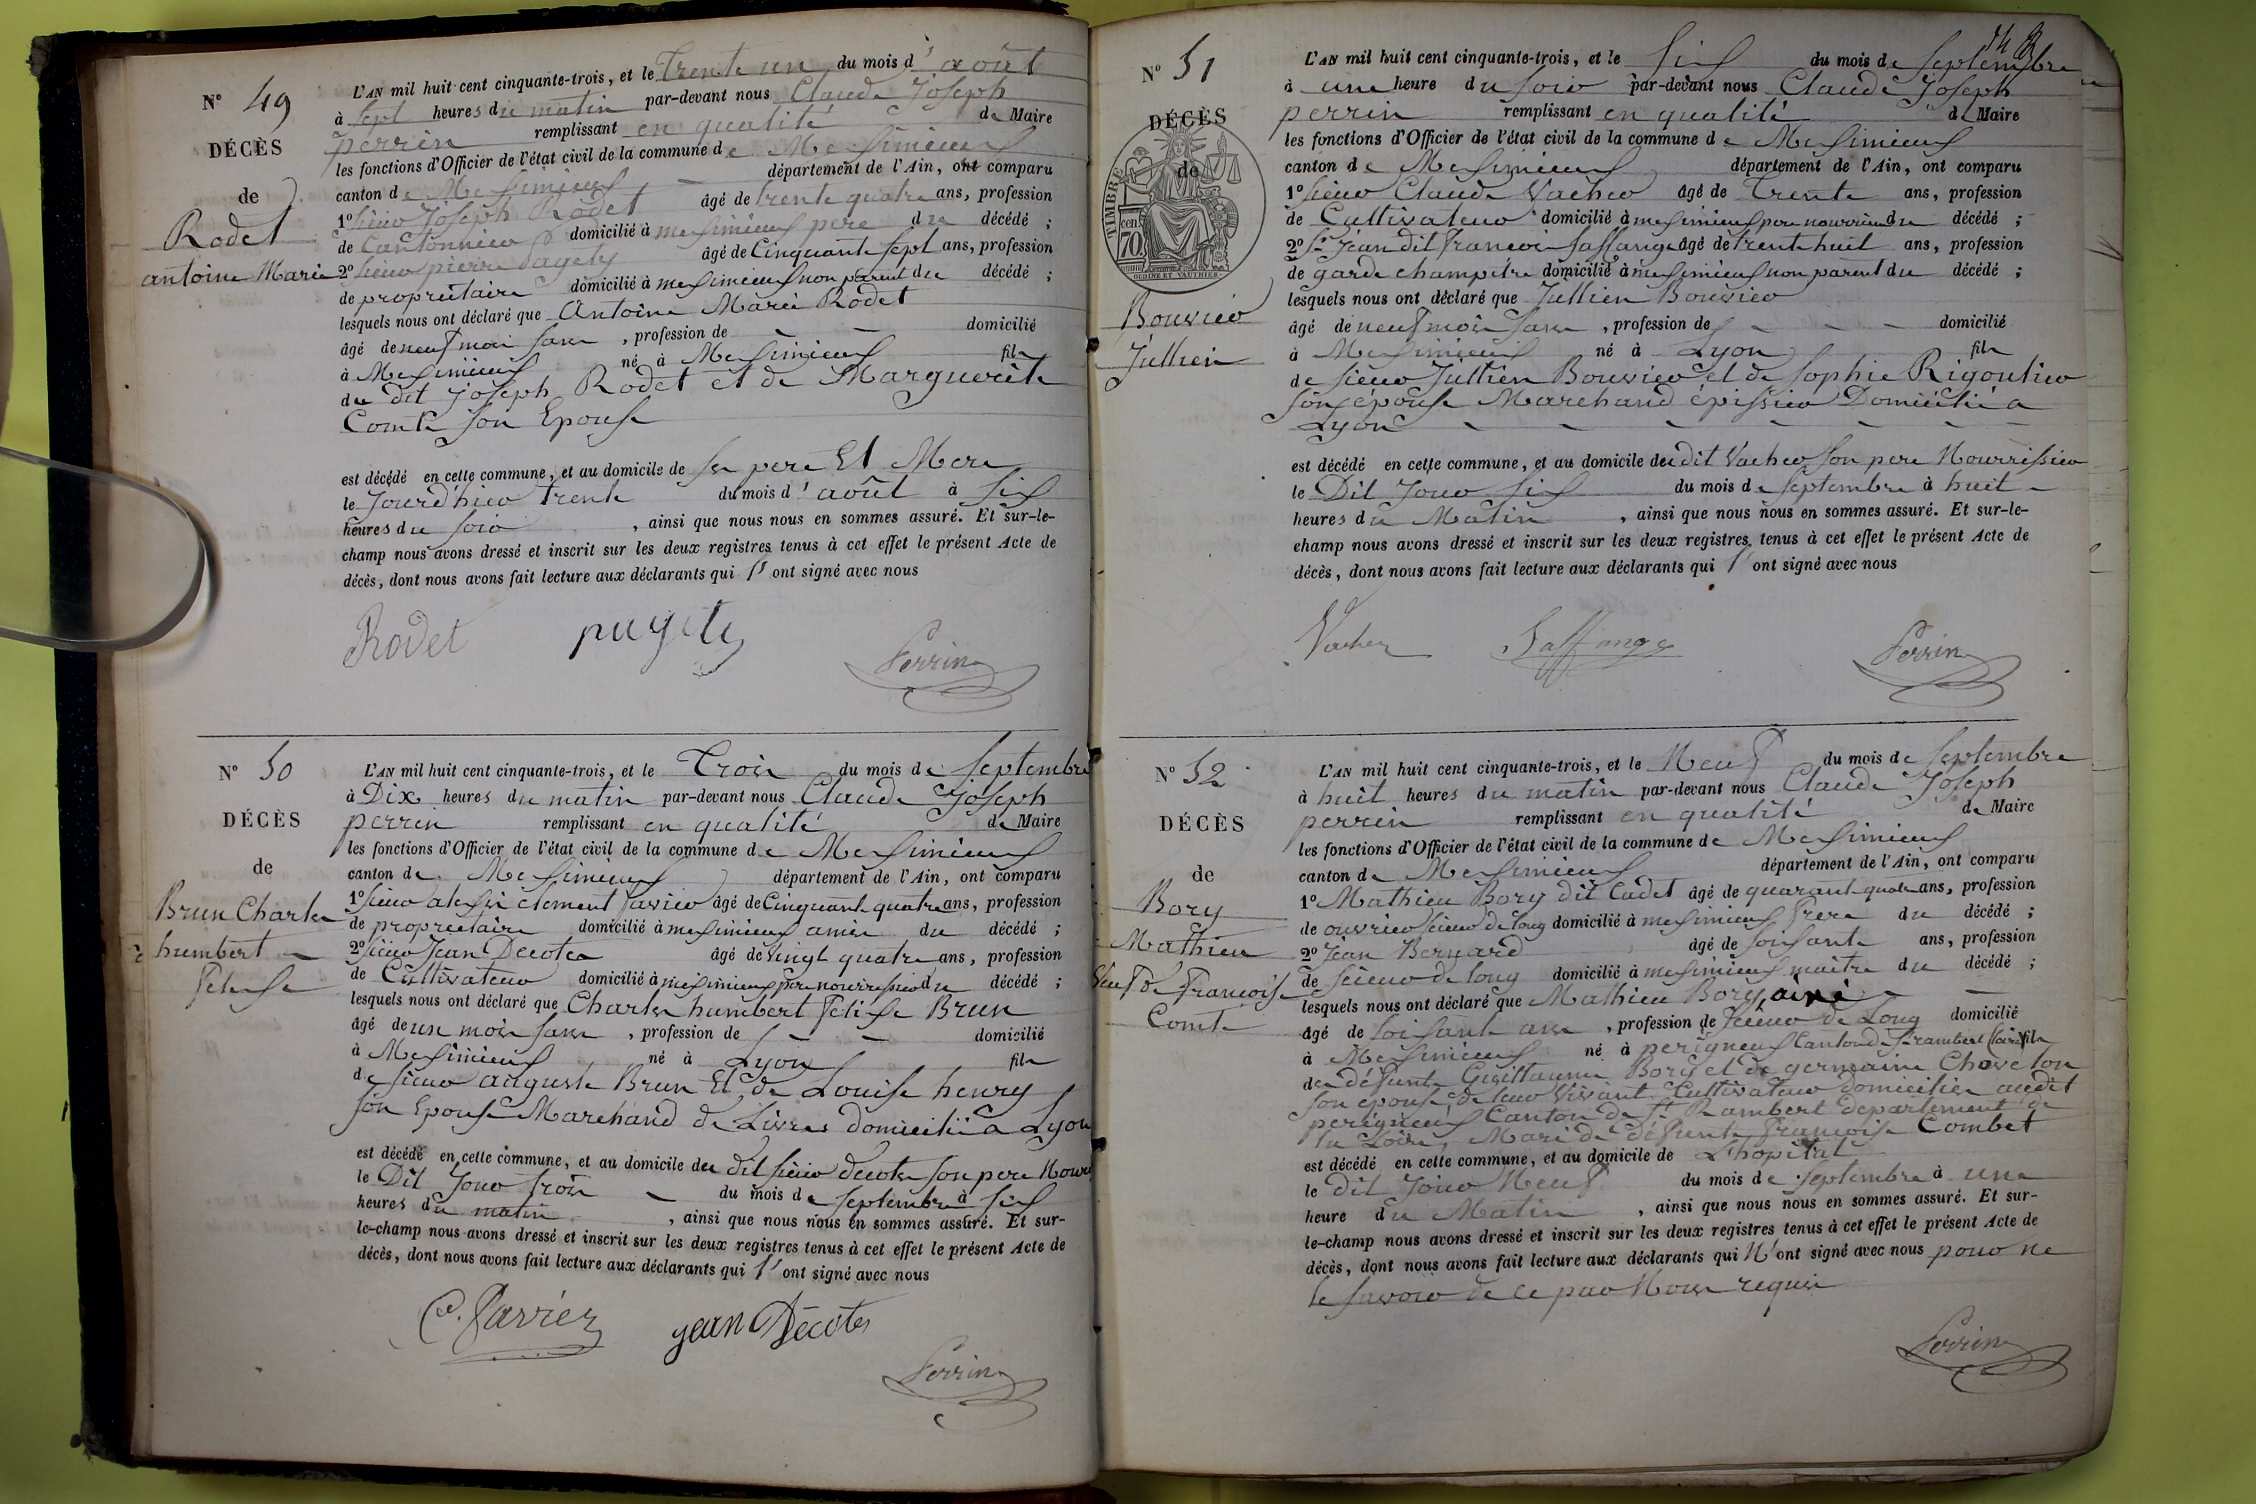 N° 49
DÉCÈS
de
Rodet
antoine Marie
L'AN mil huit cent cinquante-trois, et le Trente un du mois d' août
à sept heures du matin par-devant nous Claude Joseph
perrin remplissant en qualité de Maire
les fonctions d'Officier de l'état civil de la commune de Messimieux
canton de Messimieux département de l'Ain, ont comparu
1° sieur Joseph Rodet âgé de trente quatre ans, profession
de Cantonnier domicilié à messimieux pere du décédé ;
2° sieur pierre pagety âgé de Cinquante sept ans, profession
de proprietaire domicilié à messimieux non parent du décédé ;
lesquels nous ont déclaré que Antoine Marie Rodet
âgé de neuf mois sans , profession de domicilié
à Messimieux né à Messimieux fils
du dit Joseph Rodet et de Marguerite
Comte son Epouse
est décédé en cette commune, et au domicile de ses pere Et Mere
le Jourd'hier trente du mois d' août à six
heures du soir , ainsi que nous nous en sommes assuré. Et sur-le-
champ nous avons dressé et inscrit sur les deux registres tenus à cet effet le présent Acte de
décès, dont nous avons fait lecture aux déclarants qui l' ont signé avec nous
Rodet pugety Perrin
N° 50
DÉCÈS
de
Brun Charles
humbert
Felise
L'AN mil huit cent cinquante-trois, et le Trois du mois de septembre
à Dix heures du matin par-devant nous Claude Joseph
perrin remplissant en qualité de Maire
les fonctions d'Officier de l'état civil de la commune de Messimieux
canton de Messimieux département de l'Ain, ont comparu
1° sieur alexis clement favier âgé de Cinquante quatre ans, profession
de proprietaire domicilié à messimieux amis du décédé ;
2° sieur Jean Decotes âgé de vingt quatre ans, profession
de Cultivateur domicilié à messimieux pere nourrissier du décédé ;
lesquels nous ont déclaré que Charles humbert Felise Brun
âgé de un mois sans , profession de domicilié
à Messimieux né à Lyon fils
de sieur auguste Brun Et de Louise henry
son Epouse Marchand de Livres domicilié a Lyon
est décédé en cette commune, et au domicile du dit sieur decotes son pere Nour
le Dit Jour trois du mois de septembre à six
heures du matin , ainsi que nous nous en sommes assuré. Et sur-
le-champ nous avons dressé et inscrit sur les deux registres tenus à cet effet le présent Acte de
décès, dont nous avons fait lecture aux déclarants qui l' ont signé avec nous
C. Favier jean Decotes
Perrin
N° 51
DÉCÈS
de
TIMBRE
70 cen
Bouvier
Jullien
L'AN mil huit cent cinquante-trois, et le six du mois de septembre
à une heure du soir par-devant nous Claude Joseph
perrin remplissant en qualité de Maire
les fonctions d'Officier de l'état civil de la commune de Messimieux
canton de Messimieux département de l'Ain, ont comparu
1° sieur Claude Vacher âgé de trente ans, profession
de Cultivateur domicilié à messimieux pere nourricier du décédé ;
2° Sr Jean dit francois saffange âgé de trente huit ans, profession
de garde champêtre domicilié à messimieux non parent du décédé ;
lesquels nous ont déclaré que Jullien Bouvier
âgé de neuf mois sans , profession de domicilié
à Messimieux né à Lyon fils
de sieur Jullien Bouvier et de sophie Rigoulier
son épouse Marchand épissier Domicilié a
Lyon
est décédé en cette commune, et au domicile du dit Vacher son pere Nourrissier
le Dit Jour six du mois de septembre à huit
heures du Matin , ainsi que nous nous en sommes assuré. Et sur-le-
champ nous avons dressé et inscrit sur les deux registres tenus à cet effet le présent Acte de
décès, dont nous avons fait lecture aux déclarants qui l' ont signé avec nous
Vacher Saffange Perrin
N° 52
DÉCÈS
de
Bory
Mathieu
Veuf de Francoise
Comte
L'AN mil huit cent cinquante-trois, et le Neuf du mois de septembre
à huit heures du matin par-devant nous Claude Joseph
perrin remplissant en qualité de Maire
les fonctions d'Officier de l'état civil de la commune de Messimieux
canton de Messimieux département de l'Ain, ont comparu
1° Mathieu Bory dit Cadet âgé de quarante quatre ans, profession
de ouvrier scieur de long domicilié à messimieux frere du décédé ;
2° Jean Bernard âgé de soisante ans, profession
de scieur de long domicilié à messimieux maitre du décédé ;
lesquels nous ont déclaré que Mathieu Bory ainé
âgé de soisante ans , profession de scieur de Long domicilié
à Messimieux né à perigneux Canton de St rambert fils
de défunts Guillaume Bory et de germaine Chovelon
son épouse de leur vivant Cultivateur domiciliés audit
perigneux Canton de St Rambert departement de
la Loire, Mari de défunte francoise Combet
est décédé en cette commune, et au domicile de L'hopital
le dit Jour Neuf du mois de septembre à une
heure du Matin , ainsi que nous nous en sommes assuré. Et sur-
le-champ nous avons dressé et inscrit sur les deux registres tenus à cet effet le présent Acte de
décès, dont nous avons fait lecture aux déclarants qui N' ont signé avec nous pour ne
le savoir de ce par Nous requis
Perrin